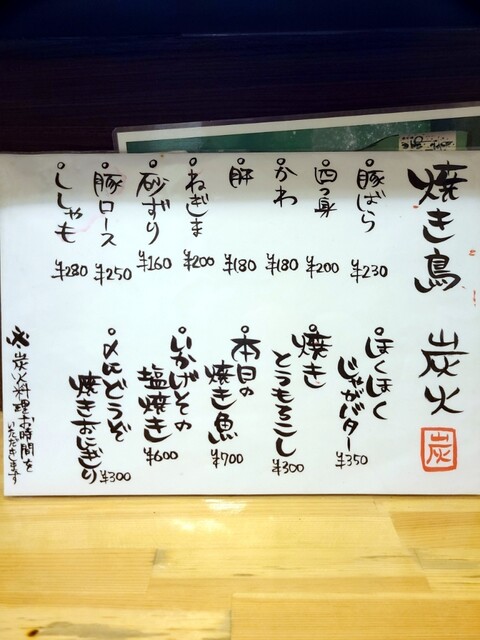 焼き鳥 炭火
炭
豚ばら ¥230
四つ身 ¥200
かわ ¥180
肝 ¥180
ねぎま ¥200
砂ずり ¥160
豚ロース ¥250
ししゃも ¥280
ほくほく
じゃがバター ¥350
焼き
とうもろこし ¥300
本日の
焼き魚 ¥700
いかげその
塩焼き ¥600
〆にどうぞ
焼きおにぎり ¥300
※炭火料理お時間を
いただきます